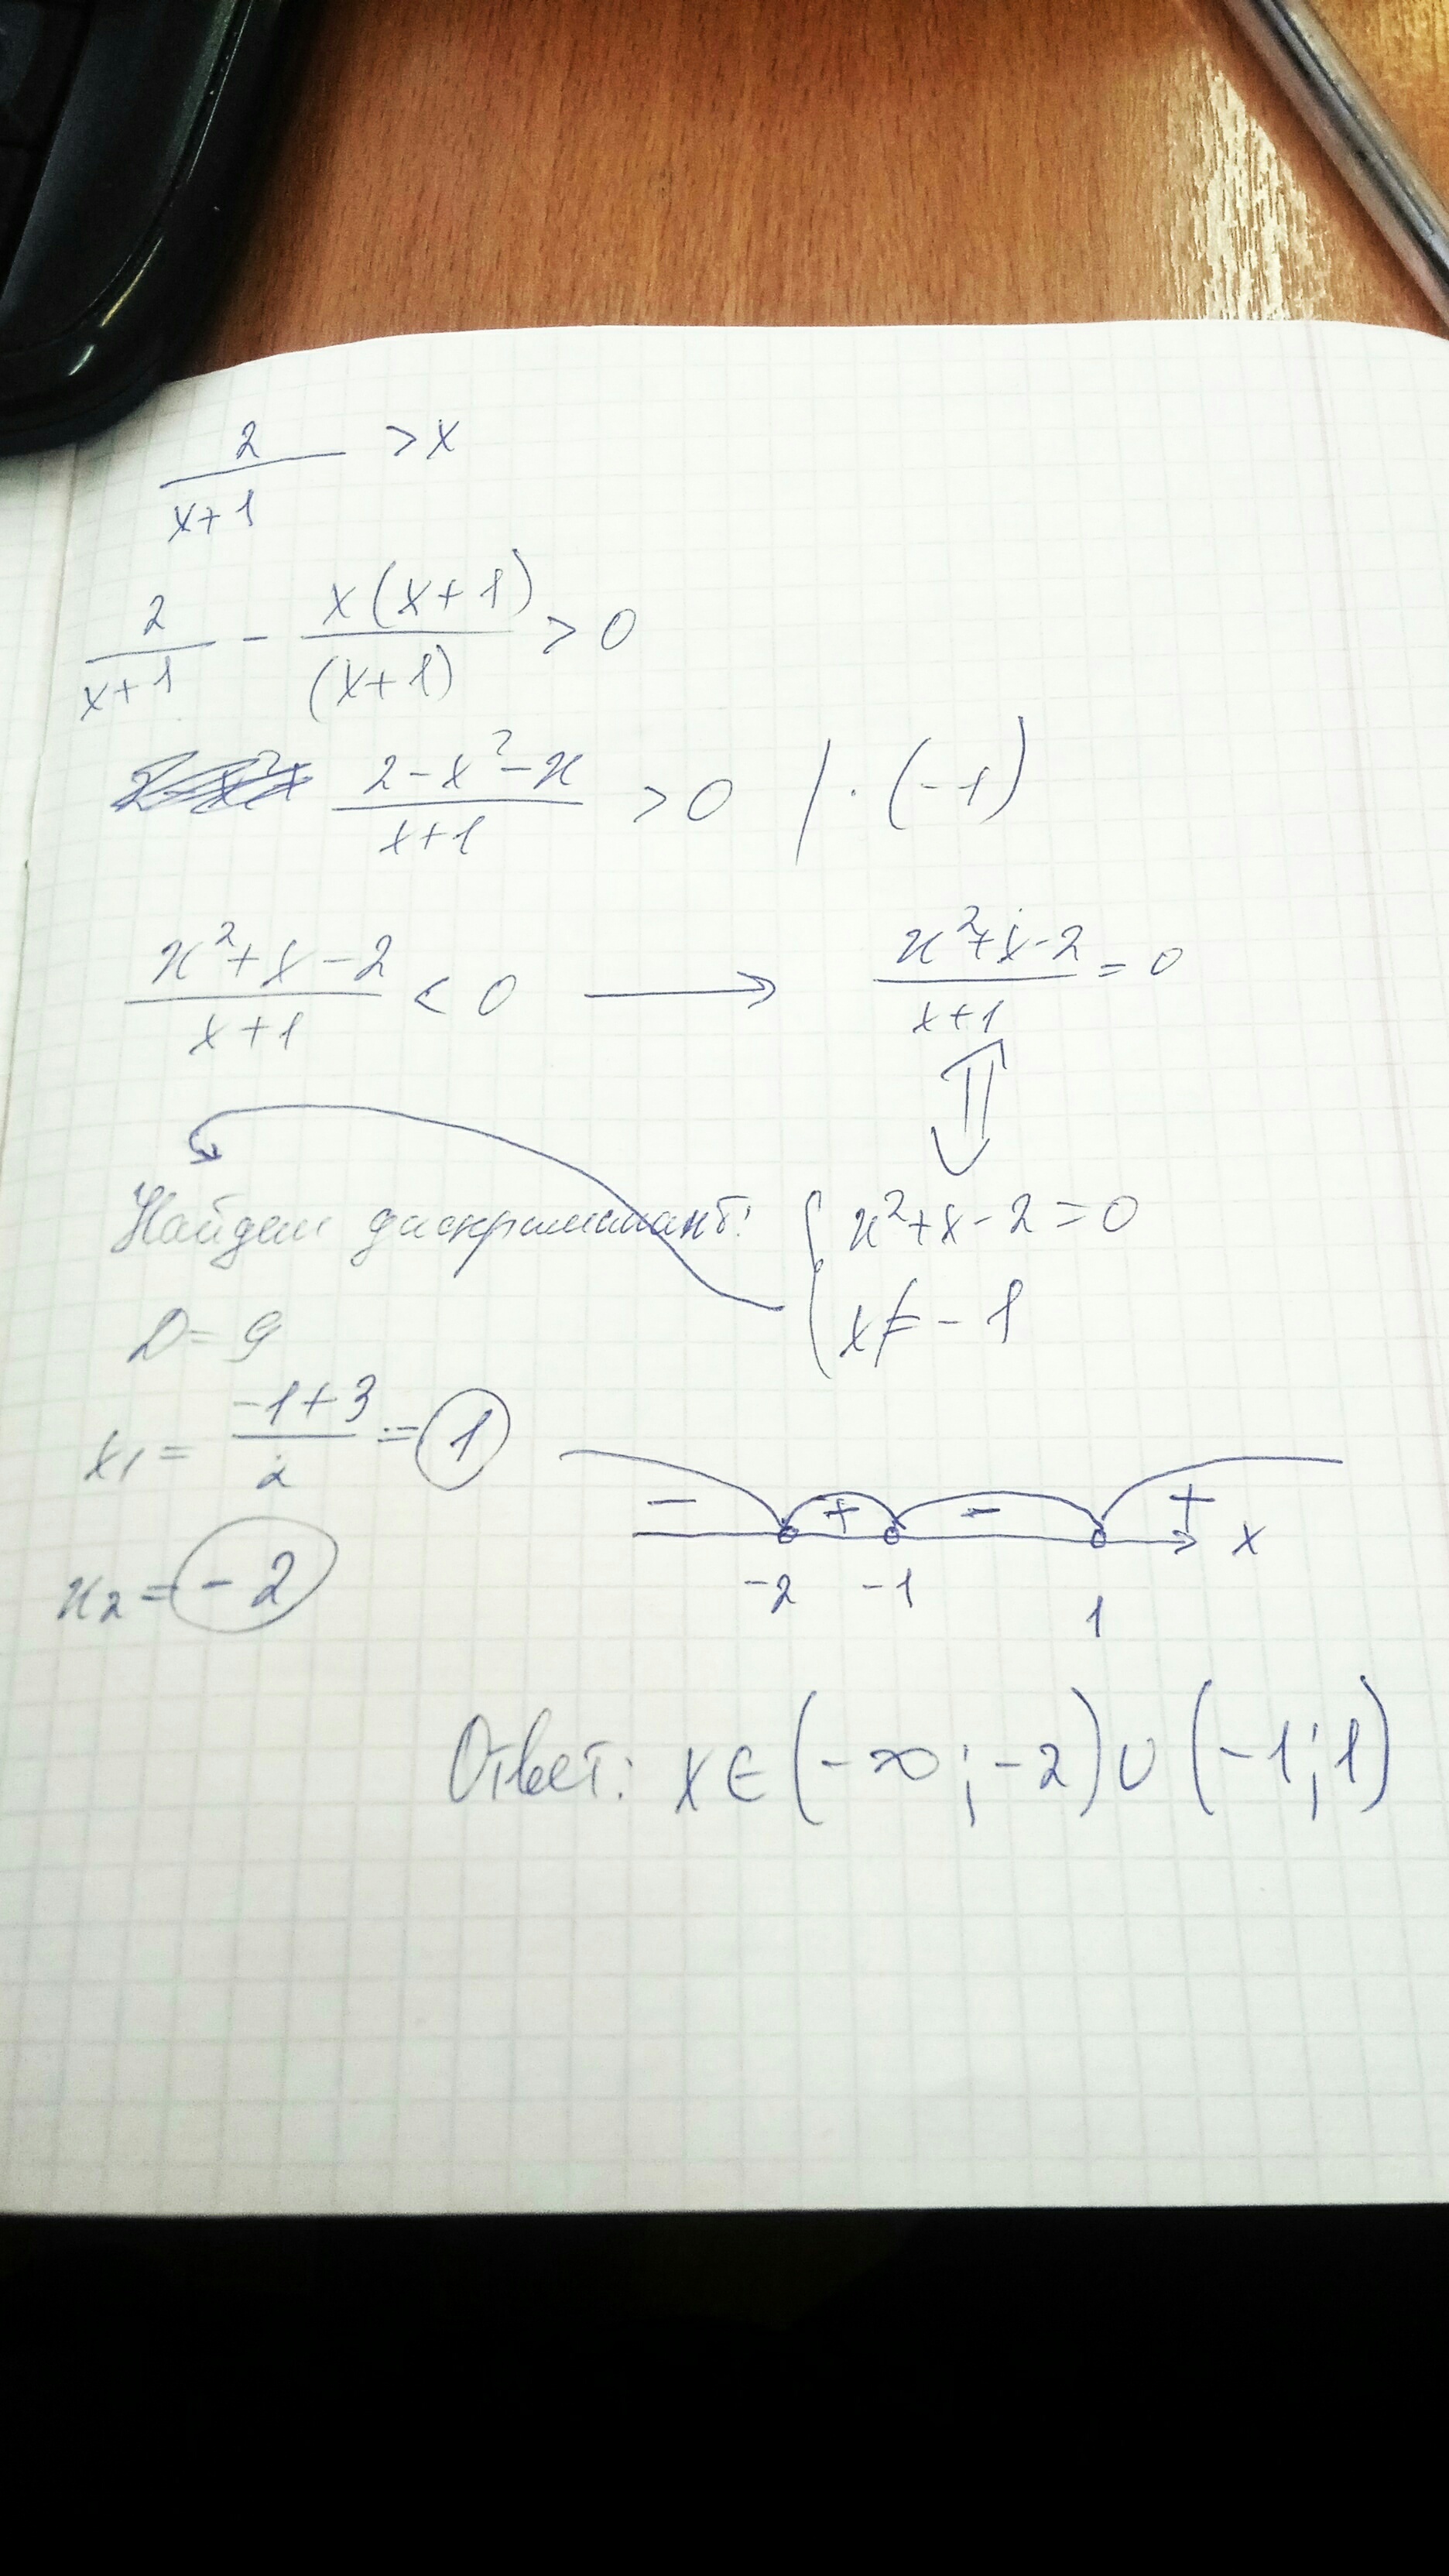 2/(x+1) > x
2/(x+1) - x(x+1)/(x+1) > 0
(2-x²-x)/(x+1) > 0 | · (-1)
(x²+x-2)/(x+1) < 0 → (x²+x-2)/(x+1) = 0
⇕
Найдем дискриминант: { x²+x-2=0
D=9 x≠-1
x1 = (-1+3)/2 = 1
- + - + x
x2 = -2 -2 -1 1
Ответ: x∈(-∞;-2)∪(-1;1)